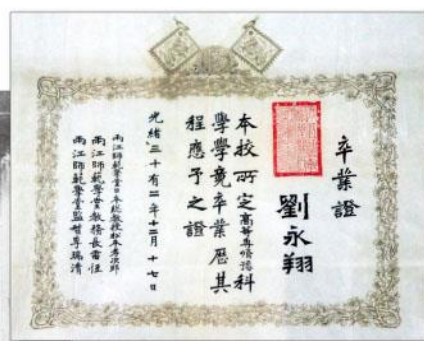 卒業證
劉永翔
本校所定高等專修豫科
學學竟卒業歷其
程應予之證
光緒三十有二年十二月十七日
兩江師範學堂日本總教授松本孝次郎
兩江師範學堂教務長雷恒
兩江師範學堂監督李瑞清